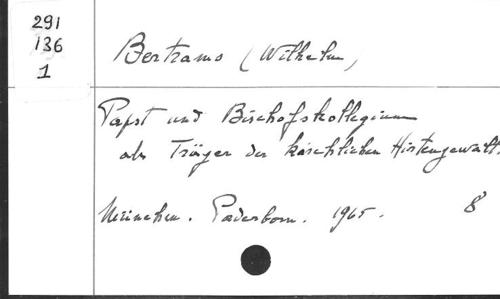 291
136
1
Bertrams (Wilhelm)
Papst und Bischofskollegium
als Träger der kirchlichen Hirtengewalt.
München. Paderborn. 1965. 8°